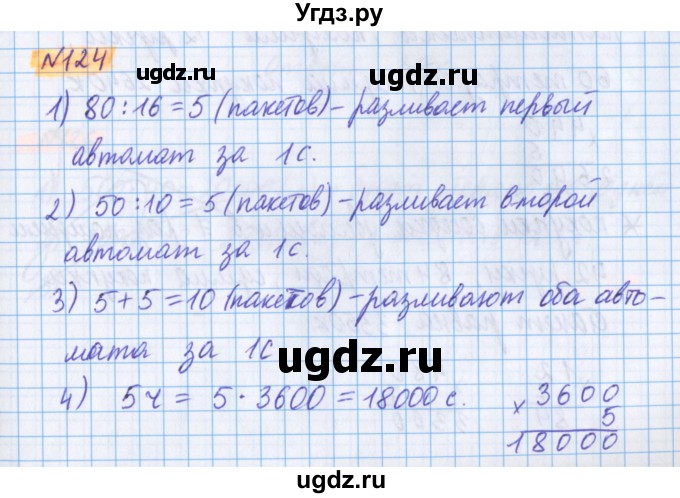 Угдз.ру
№124
ugdz.ru ugdz.ru
1) 80 : 16 = 5 (пакетов) – разливает первый
автомат за 1с.
ugdz.ru ugdz.ru
2) 50 : 10 = 5 (пакетов) – разливает второй
автомат за 1с.
3) 5 + 5 = 10 (пакетов) – разливают оба авто–
мата за 1с
ugdz.ru
4) 5 ч = 5 · 3600 = 18000 с.
× 3600
5
18000
ugdz.ru
ugdz.ru